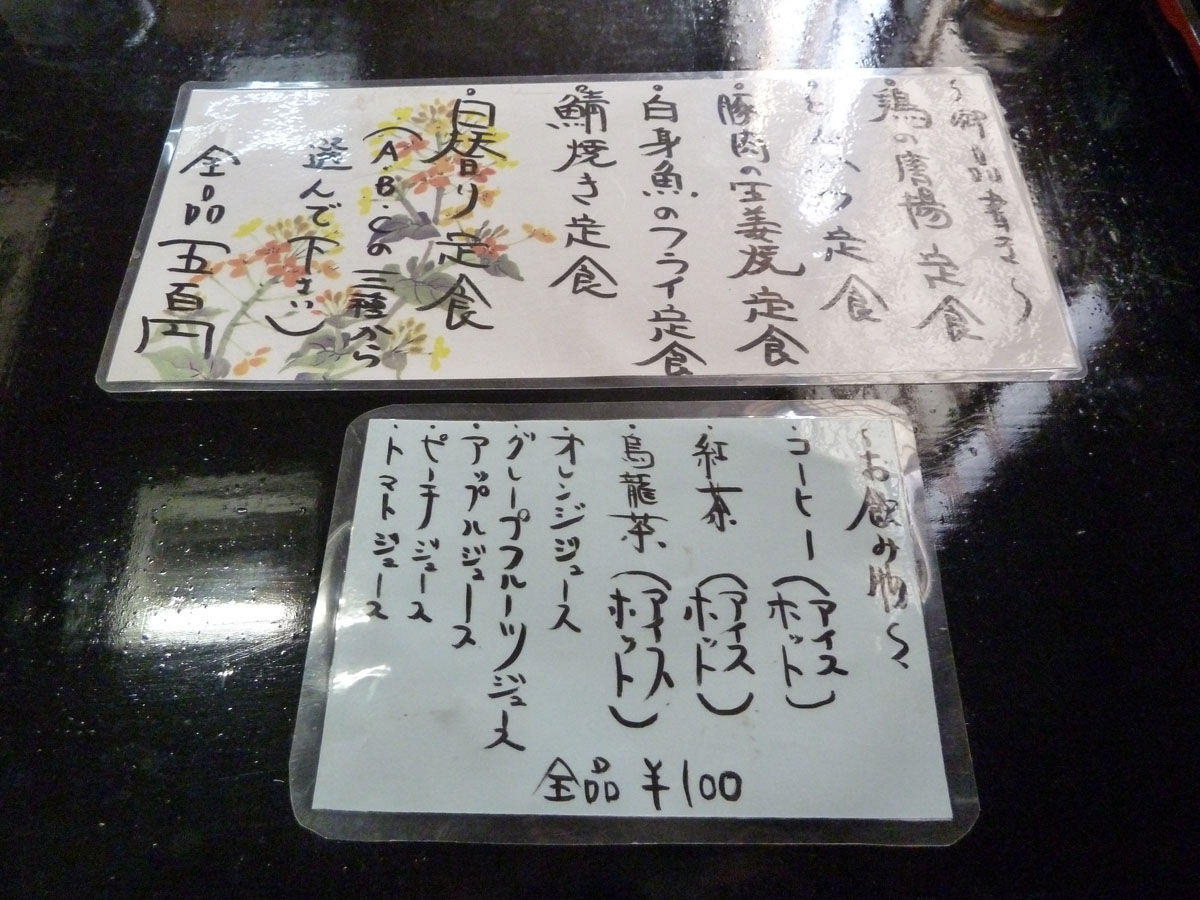 ~御品書き~
・鶏の唐揚定食
・とんかつ定食
・豚肉の生姜焼定食
・白身魚のフライ定食
・鯖焼き定食
・日替り定食
(A・B・Cの三種から
選んで下さい)
全品五百円
~お飲み物~
・コーヒー(アイス
ホット)
・紅茶(アイス
ホット)
・烏龍茶(アイス
ホット)
・オレンジジュース
・グレープフルーツジュース
・アップルジュース
・ピーチジュース
・トマトジュース
全品¥100